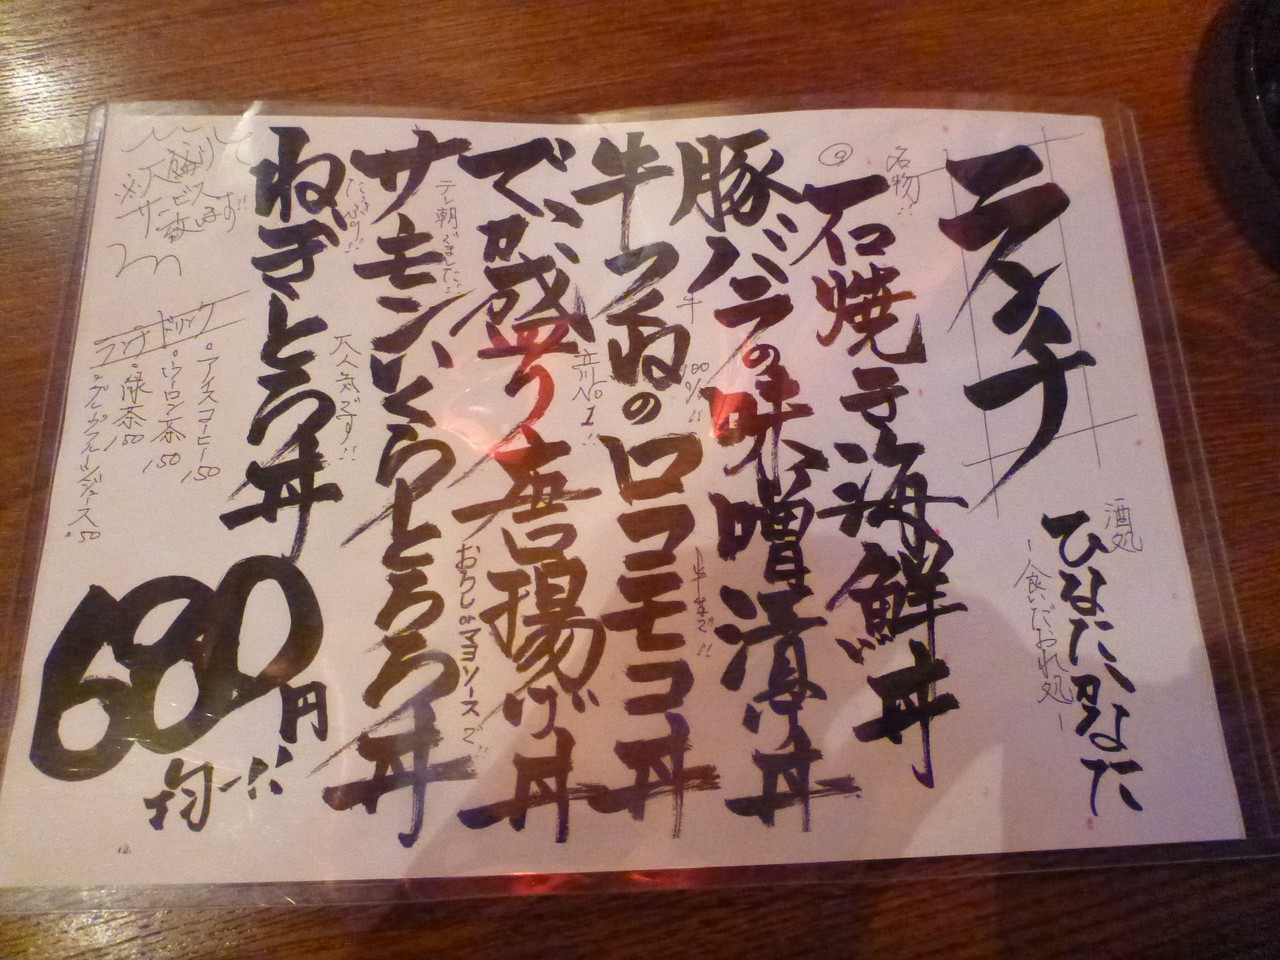 ランチ
酒処
ひなたひなた
-食いだおれ処-
名物!!
石焼き海鮮丼
豚バラの味噌漬け丼
牛100%!!
牛つねのロコモコ丼
立川No1!!
で、か盛り唐揚げ丼
おろしorマヨソースで!!
テレ朝
サーモンいくらとろろ丼
大人気です!!
ねぎとろ丼
680円
均一!!
※大盛り
サービス
ランチドリンク
・アイスコーヒー 150
・ウーロン茶 150
・緑茶 150
・グレープフルーツジュース 150